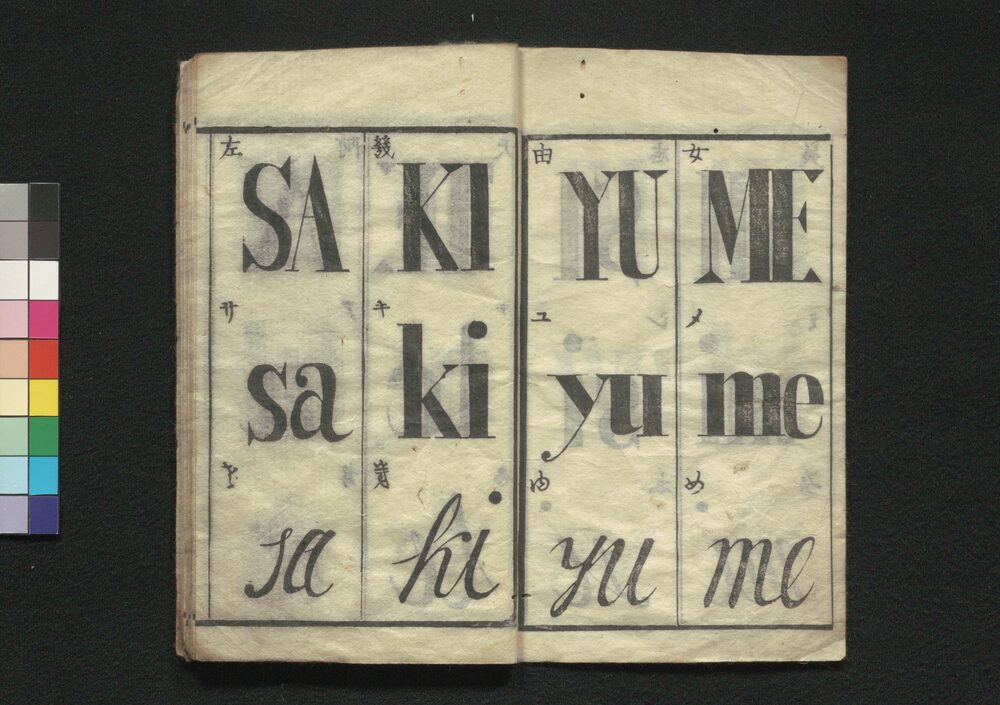 左
SA
KI
由
YU
女
ME
サ
sa
キ
ki
ユ
yu
メ
me
さ
sa
ki
ゆ
yu
め
me